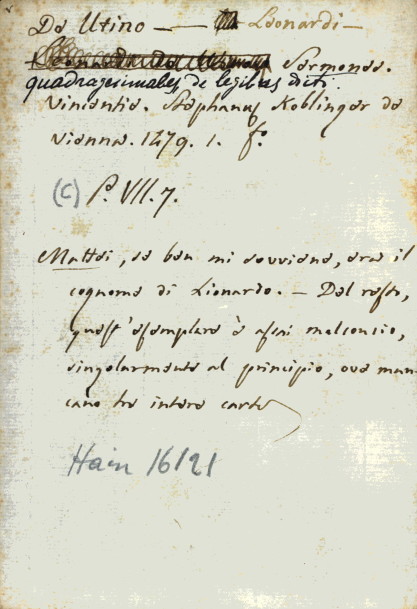 De Utino — Leonardi —
Sermones
quadragesimales de legibus dicti.
Vincentie. Stephanus Koblinger de
Vienna. 1479. 1. fo.
(C) P. VII. 7.
Mattei, se ben mi sovviene, era il
cognome di Lionardo. — Del resto,
quest'esemplare è assai malconcio,
singolarmente al principio, ove man-
cano tre intere carte
Hain 16121